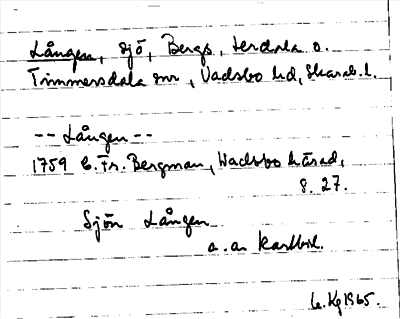 Lången, sjö, Bergs, Lerdala o.
Timmersdala snr, Vadsbo hd, Skarab. l.
-- Lången --
1759 C. Fr. Bergman, Wadsbo härad,
s. 27.
Sjön Lången
a. a. kartbil.
1965.